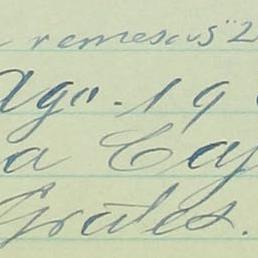 remesas" 2
Ago. 19
a Caj
Grales.